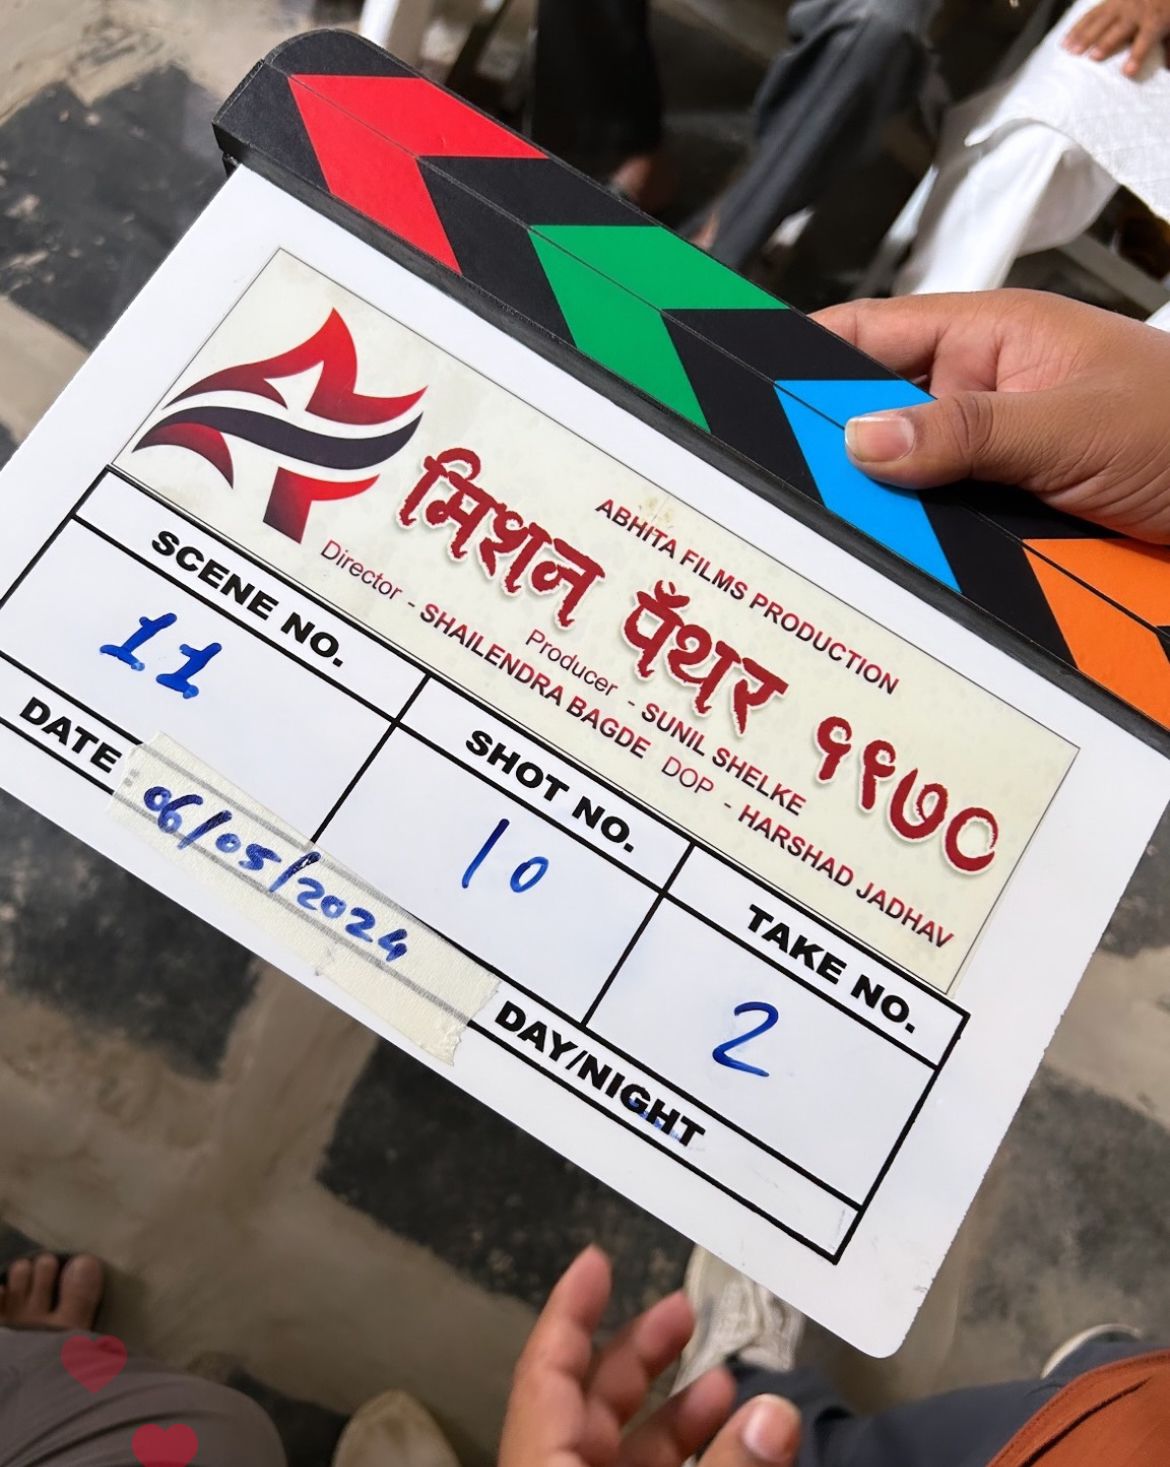 ABHITA FILMS PRODUCTION
मिशन पँथर १९७०
Producer - SUNIL SHELKE
Director - SHAILENDRA BAGDE DOP - HARSHAD JADHAV
SCENE NO.
11
SHOT NO.
10
TAKE NO.
2
DATE :
06/05/2024
DAY/NIGHT